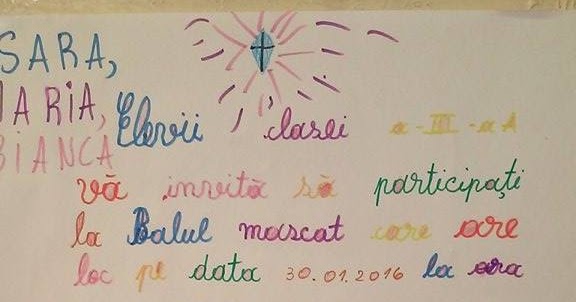 SARA,
MARIA,
BIANCA
Elevii clasei a-III-a A
vă invită să participați
la Balul mascat care are
loc pe data 30.01.2016 la ora